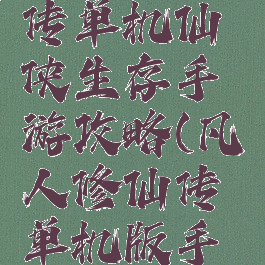 传单机仙
侠生存手
游攻略(凡
人修仙传
单机版手